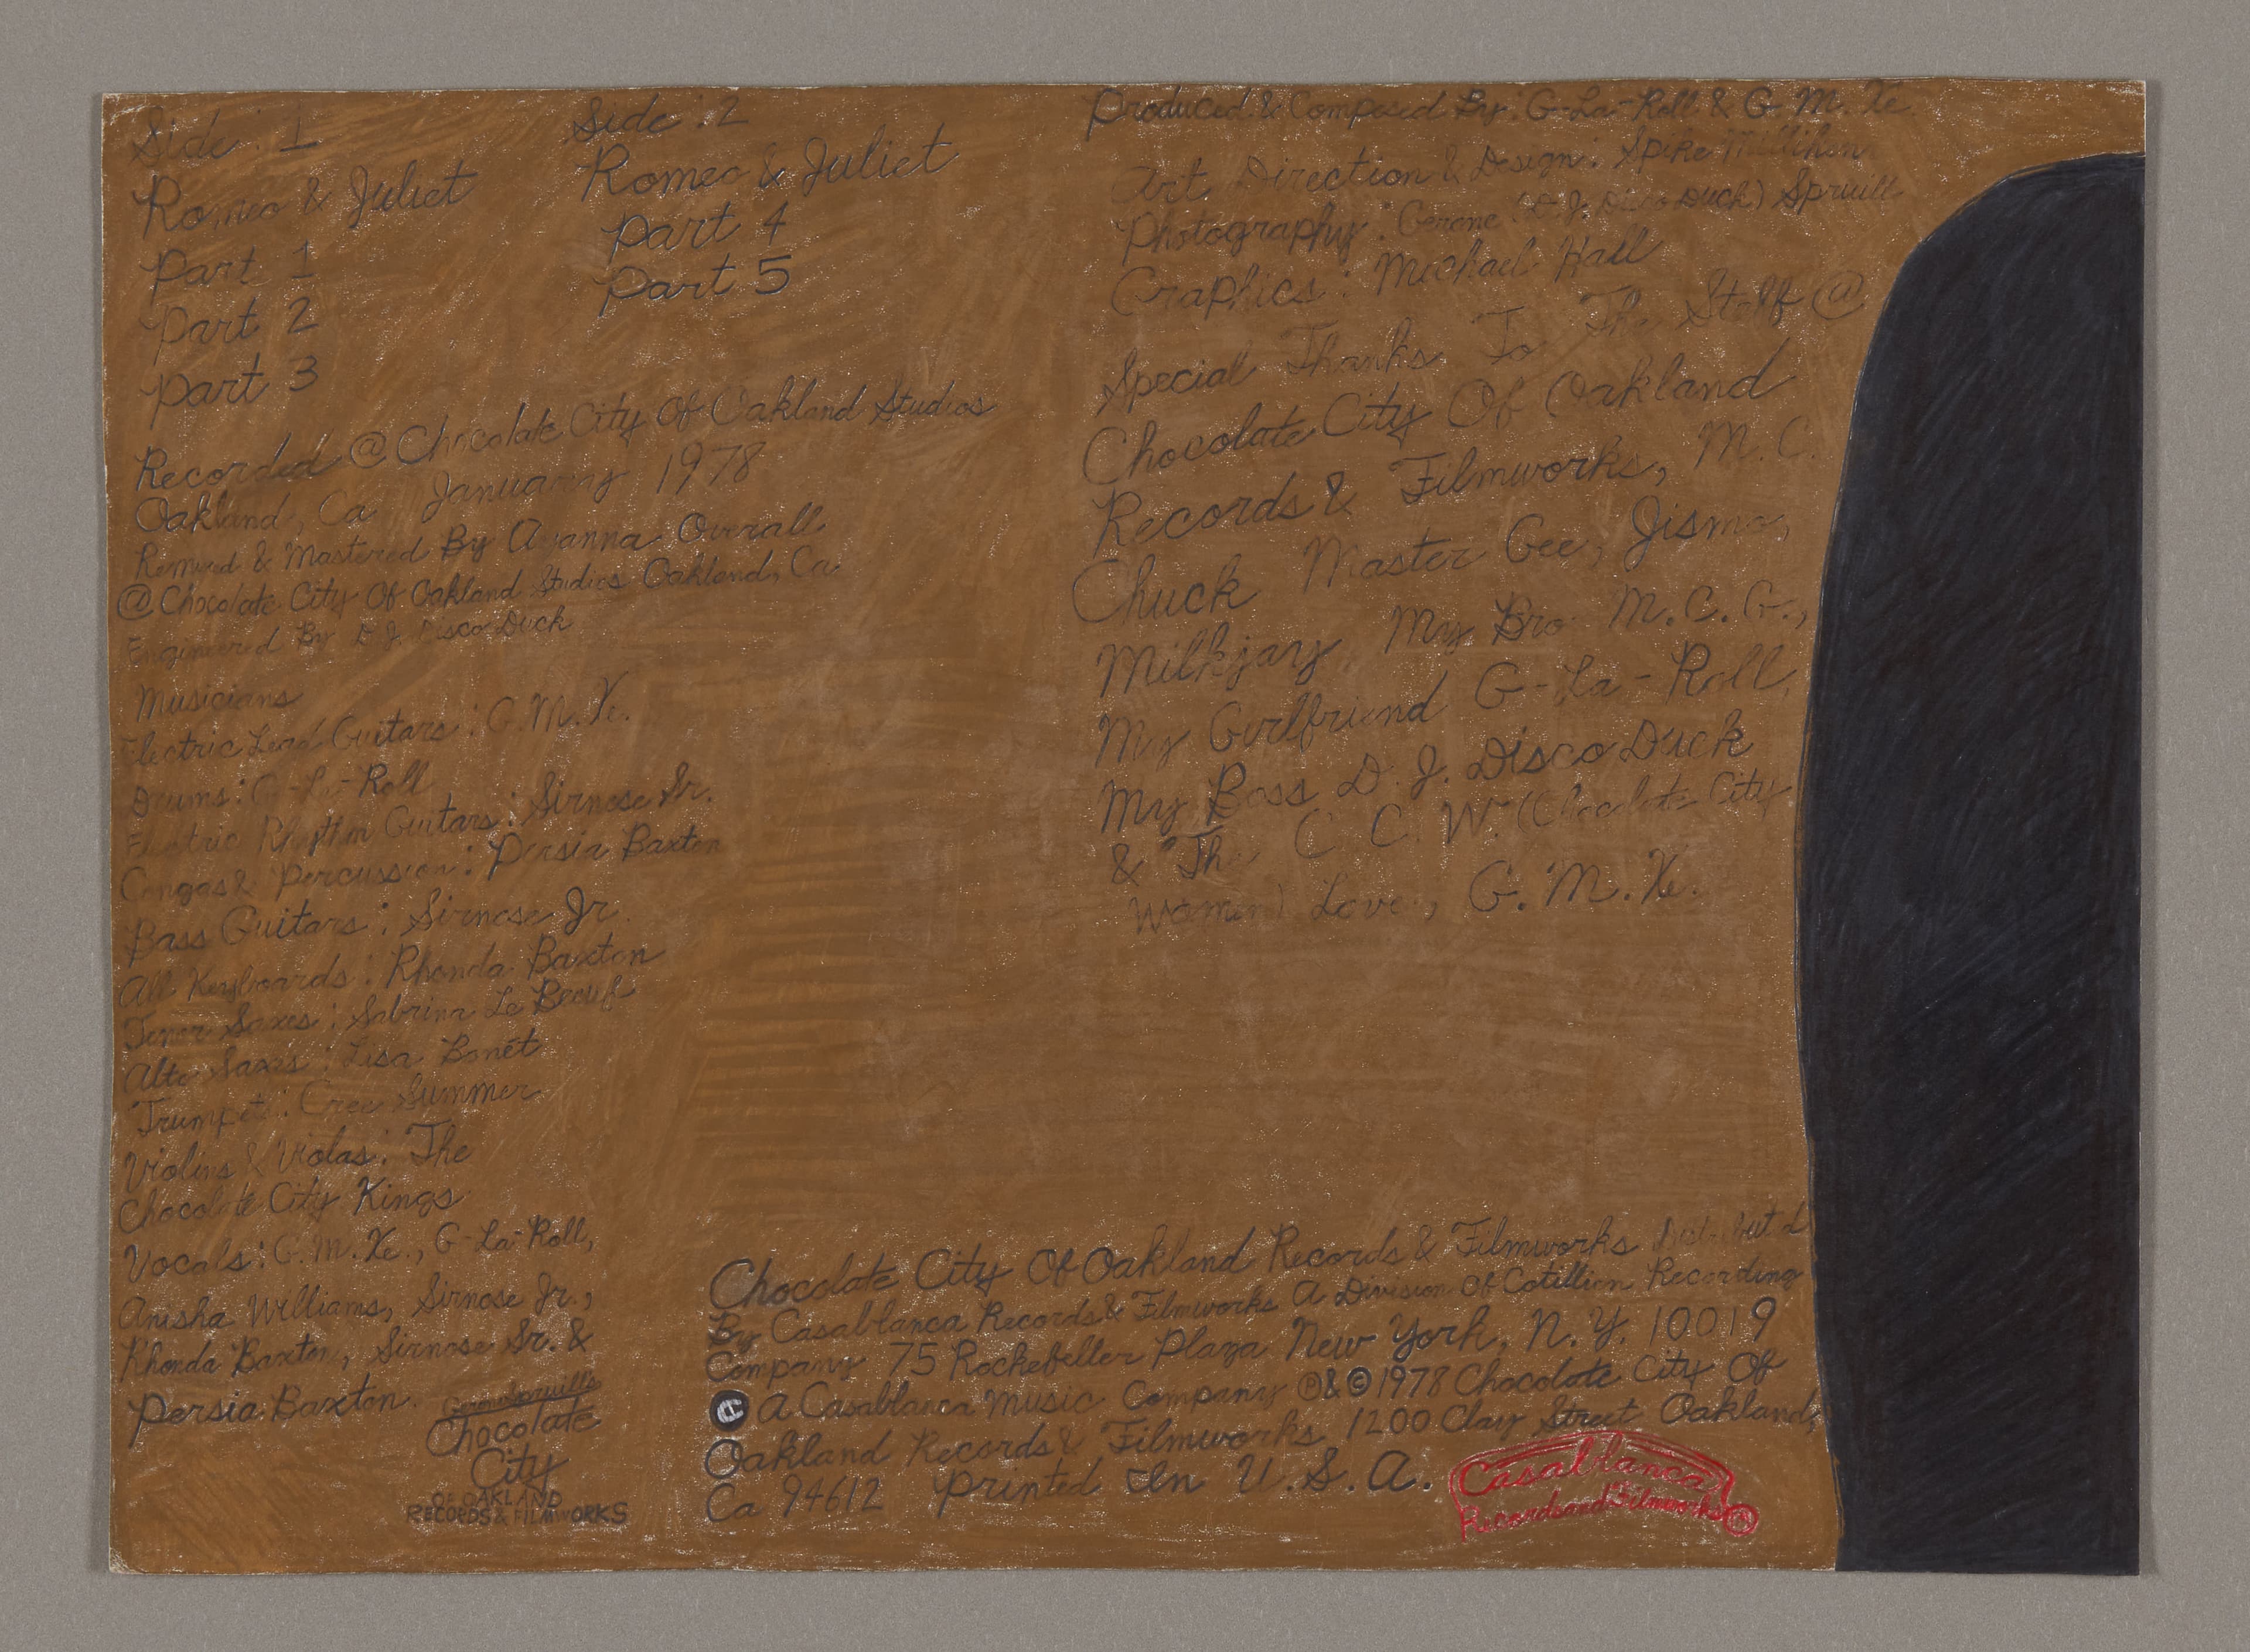 Side: 1
Romeo & Juliet
Part 1
Part 2
Part 3
Side: 2
Romeo & Juliet
Part 4
Part 5
Recorded @ Chocolate City Of Oakland Studios
Oakland, Ca January 1978
Remixed & Mastered By Ayanna Overall
@ Chocolate City Of Oakland Studios Oakland, Ca
Engineered By D.J. Disco Duck
Musicians
Electric Lead Guitars: G.M.Xe.
Drums: G-La-Roll
Electric Rhythm Guitars: Sirnose Sr.
Congas & Percussion: Persia Baxton
Bass Guitars: Sirnose Jr.
All Keyboards: Rhonda Baxton
Tenor Saxes: Sabrina Le Beouf
Alto Saxes: Lisa Bonét
Trumpets: Cree Summer
Violins & Violas: The
Chocolate City Kings
Vocals: G.M.Xe., G-La-Roll,
Anisha Williams, Sirnose Jr.,
Rhonda Baxton, Sirnose Sr. &
Persia Baxton.
Gerone Spruill's
Chocolate
City
OF OAKLAND
RECORDS & FILMWORKS
Produced & Composed By: G-La-Roll & G.M.Xe.
Art Direction & Design: Spike Millihon
Photography: Gerone (D.J. Disco Duck) Spruill
Graphics: Michael Hall
Special Thanks To The Staff @
Chocolate City Of Oakland
Records & Filmworks, M.C.
Chuck Master Gee, Jismo,
Milkjary My Bro M.C.G.,
My Girlfriend G-La-Roll,
My Boss D.J. Disco Duck
& The C.C.W. (Chocolate City
Women) Love, G.M.Xe.
Chocolate City Of Oakland Records & Filmworks Distributed
By Casablanca Records & Filmworks A Division Of Cotillion Recording
Company 75 Rockefeller Plaza New York, N.Y. 10019
© A Casablanca Music Company ℗ & © 1978 Chocolate City Of
Oakland Records & Filmworks 1200 Clay Street Oakland,
Ca 94612 Printed In U.S.A.
Casablanca
Records and Filmworks ®